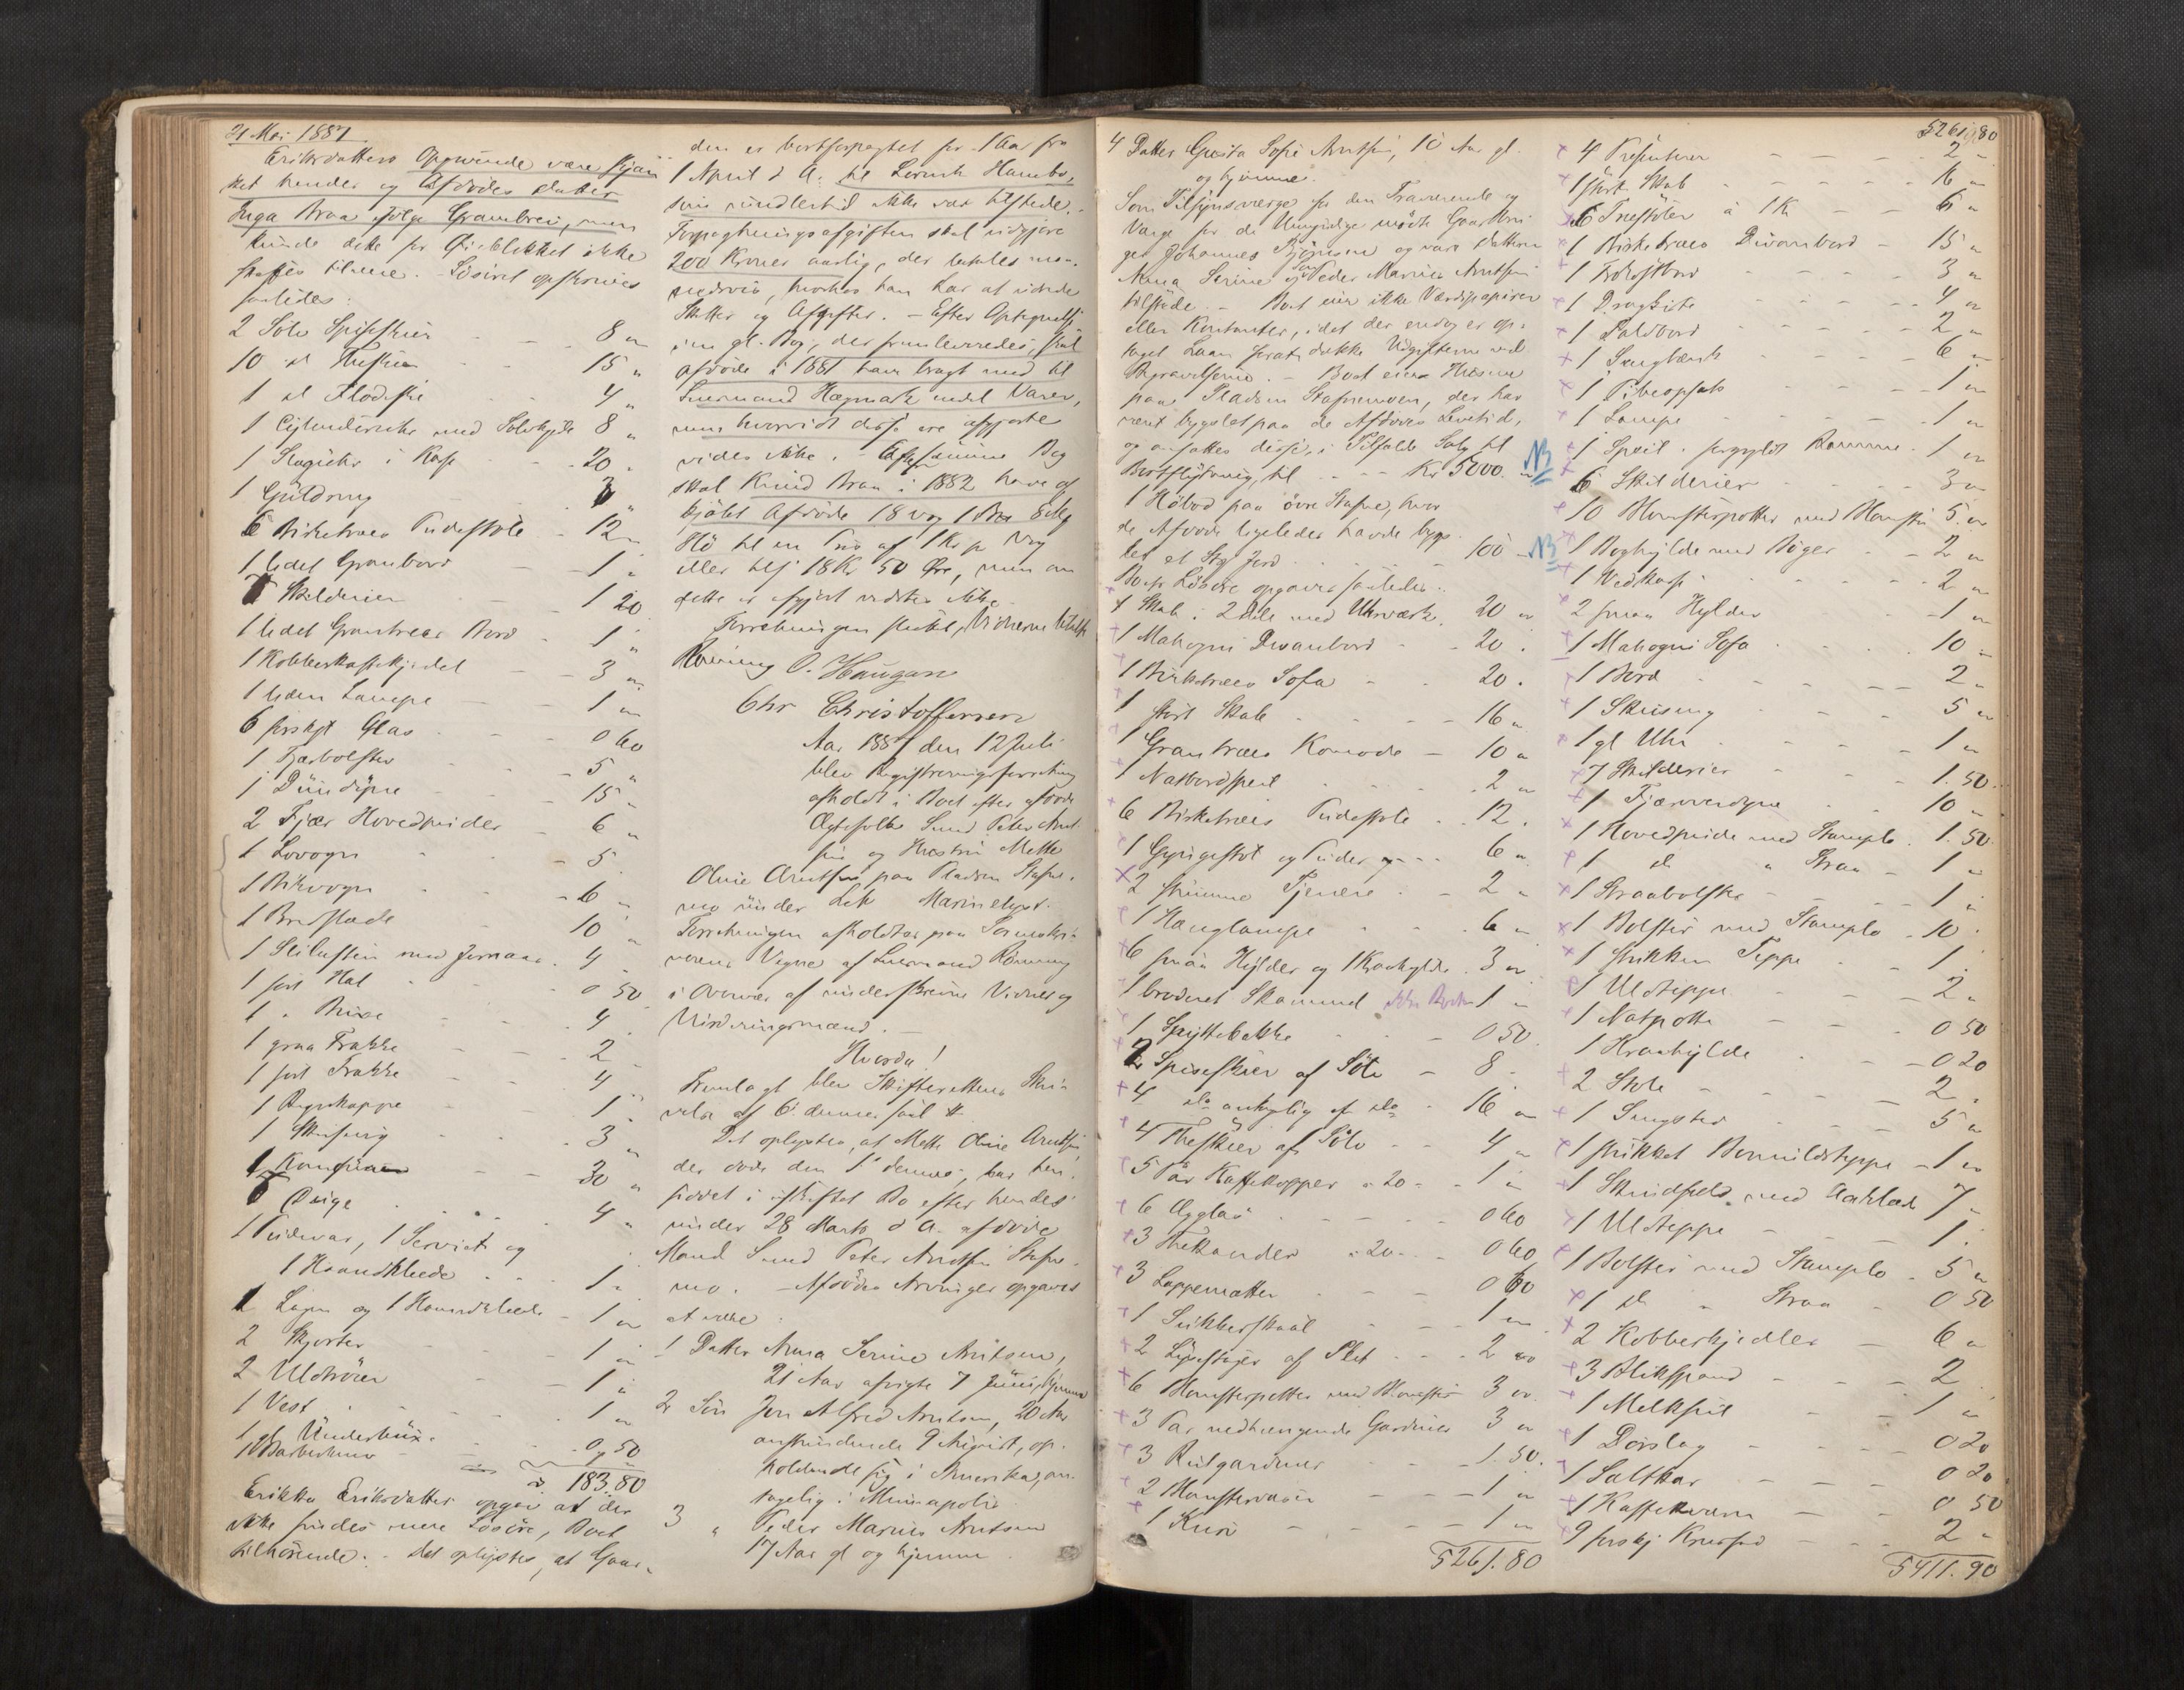 21 Mai 1887
Eriksdatters Opgivende være skjæn
ket hende og Afdödes Datter
Inga Braa ifölge Gavebrev, men
kunde dette for Öieblikket ikke
skaffes tilveie. - Lösöret opskreves
saaledes:
2 Sölv Spiseskeer - - 8 "
10 dl Theskeer 15 "
1 dl Flödeske 4 "
1 Cylinderuhr med Sölvkjede 8 "
1 Slaguhr i Kasse - - 20 "
1 Guldring 3 "
6 Birketræes Pudestole - 12 "
1 lidet Granbord - 1 "
Skilderier - 1 20
1 lidet Grantræes Bord - 1 "
1 Kobberkaffekjedel - 3 "
1 liden Lampe - 1 "
6 forskjt Glas - - 0 60
1 Fjærbolster - - 5 "
1 Dundyne - 15 "
2 Fjær Hovedpuder - 6 "
1 Lovogn - 5
1 Arkvogn - 6 "
1 Bredslæde 10 "
1 Slibesten med Jernaas. 4
1 sort Hat 0 50
1 " Buxe 4
1 graa Frakke - - 2
1 sort Frakke - - 4
1 Regnkappe - 1 "
1 Skindpung 3 "
1 30 "
4 "
1 Pudevar, 1 Serviet og
1 Haandklæde - - 1 "
1 Lagen og 1 Haandklæde - 1 "
2 Skjorter - - 1 "
2 Uldtröier - - 1 "
1 Vest - - 1 "
1 gl Underbuxe
1 - - 0 50
183.80
Erikka Eriksdatter opgav at der
ikke findes mere Lösöre, Boet
tilhörende. - Det oplystes, at Gaar-
den er bortforpagtet for 1 Aar fra
1 April d A. til Lornts Hambo,
som imidlertid ikke var tilstede. -
Forpagtningsafgiften skal udgjöre
200 Kroner aarlig, der betales maa-
nedsvis, hvorhos han har at udrede
Skatter og Afgifter. - Efter Optegnelse
i en gl. Bog, der fremleveredes, skal
afdöde i 1881 have bragt med til
Lensmand Hegmark endel Varer,
men hvorvidt disse ere afgjorte
vides ikke. - Efter samme Bog
skal Knud Braa i 1882 have af
kjöbt Afdöde 18 Vog 1 Bm Eng
Hö til en Pris af 1 Kr pr Vog
eller tils 18 Kr 50 Öre, men om
dette er afgjort vidstes ikke
Forretningen sluttet, Vidnerne tilstede
Rönning O. Haugan
Chr Christoffersen
Aar 1887 den 12 Juli
blev Registreringsforretning
afholdt i Boet efter afdöde
Ægtefolk Svend Peter Arnt-
sen og Hustru Mette
Oline Arntsen paa Pladsen Stafne-
mo under Lek Marinelyst.
Forretningen afholdtes paa Sorenskri-
verens Vegne af Lensmand Rönning
i Overvær af underskrevne Vidner og
Vurderingsmænd.
Hvorda!
Fremlagt blev Skifterettens Skri-
velse af 6 dennes saal #
Det oplystes, at Mette Oline Arntsen,
der döde den 1 dennes, har hen-
siddet i uskiftet Bo efter hendes
under 28 Marts d A. afdöde
Mand Svend Peter Arntsen Stafne-
mo. - Afdödes Arvinger opgaves
at være:
1 Datter Anna Serine Arntsen,
21 Aar afvigte 7 Juni, hjemme
2 Sön Jon Alfred Arntsen, 20 Aar
anstundende 9 August, op-
holdende sig i Amerika, an-
tagelig i Minneapolis
3 " Peder Marius Arntsen
17 Aar gl og hjemme
4 Datter Gusta Sofie Arntsen, 10 Aar gl.
og hjemme.
Som Tilsynsværge for den Fraværende og
Værge for de Umyndige mödte Gaardbru-
ger Johannes Björnsen og vare Datteren
Anna Serine og Sön Peder Marius Arntsen
tilstede. - Boet eier ikke Værdipapirer
eller Kontanter, idet der endog er op-
taget Laan forat dække Udgifterne ved
Begravelserne. - Boet eier Husene
paa Pladsen Stafnemoen, der har
været bygslet paa de Afdödes Levetid,
og ansattes disse, i Tilfælde Salg til
Bortflytning, til - - Kr 5000. " NB
1 Höbod paa övre Stafne, hvor
de Afdöde ligeledes havde bygs-
let et Stk Jord - 100 - NB
Boets Lösöre opgaves saaledes:
1 Skab i 2 Dele med Uhrværk. 20 "
1 Mahogni Divanbord - - 20 "
1 Birketræes Sofa - 20 .
1 stort Skab - - 16 "
1 Grantræes Komode - 10 "
1 Natbordspeil 2 "
6 Birketræes Pudestole - 12 .
1 Gyngestol og Puder - - 6 "
2 stumme Tjenere - - 2 "
1 Hænglampe 6 "
6 smaa Hylder og 1 Kroghylde . 3 "
1 broderet Skammel 1 "
1 Spyttebakke - 0 50.
2 Spiseskeer af Sölv - 8 -
4 do antagelig af do - 16 "
4 Theskeer af Sölv - - 4 "
5 Par Kaffekopper à 20 - 1 "
6 Ægglas - - - 0 60
3 Thekander à 20 - - 0 60
3 Lappematter - - 0 60
1 Sukkerskaal - - 1 "
2 Lysestager af Plet - - 2 "
6 Blomsterpotter med Blomster 3 "
3 Par nedhængende Gardiner 3 "
3 Rulgardiner - - 1.50.
2 Blomstervaser - - 1 "
1 Kurv - - - 1 "
5261.80
5261.80
4 Præsenterer - - 2 "
1 stort Skab - - - 16 "
6 Træstoler à 1 Kr - 6 "
1 Birketræes Divanbord - 15 "
1 - - 3 "
1 Dragkiste - - 4 "
1 Faldbord - - 2 "
1 Sengbænk - - 6 "
1 Pibeopsats - - 1 "
1 Lampe - - 1 "
1 Speil i forgyldt Ramme. 1 "
6 Skilderier - - 3 "
10 Blomsterpotter med Blomster 5. "
1 Boghylde med Böger - - 2 "
1 Vedkasse - - 2 "
2 smaa Hylder - - 1 "
1 Mahogni Sofa - - 10 "
1 Bord - - 2 "
1 5 "
1 gl Uhr - - 1 "
7 Skilderier - - 1.50.
1 Fjæroverdyne - - 10 "
1 Hovedpude med Stamplo . 1.50
1 dl " Straa - 1 "
1 Straabolster - - 1 "
1 Bolster med Stamplo - 10 .
1 strikken Teppe - 1 .
1 Uldteppe - - 2 "
1 Natpotte - - 0 50
1 Kroghylde - - 0 20
2 Stole - - 2 "
1 Sengsted - - 5 "
1 strikket Bomuldsteppe - 1 "
1 Skindfeld med Aaklæd 7 "
1 Uldteppe - - 1 .
1 Bolster med Stamplo . 5 "
1 dl " Straa - 0 50
2 Kobberkjedler - - 6 "
3 Blikspand - - 2 .
1 Melksil - - 1 "
1 Dörslag - - 0 20
1 Saltkar - - 0 20
1 Kaffekværn - - 0 50
9 forskj 2 "
5411.90